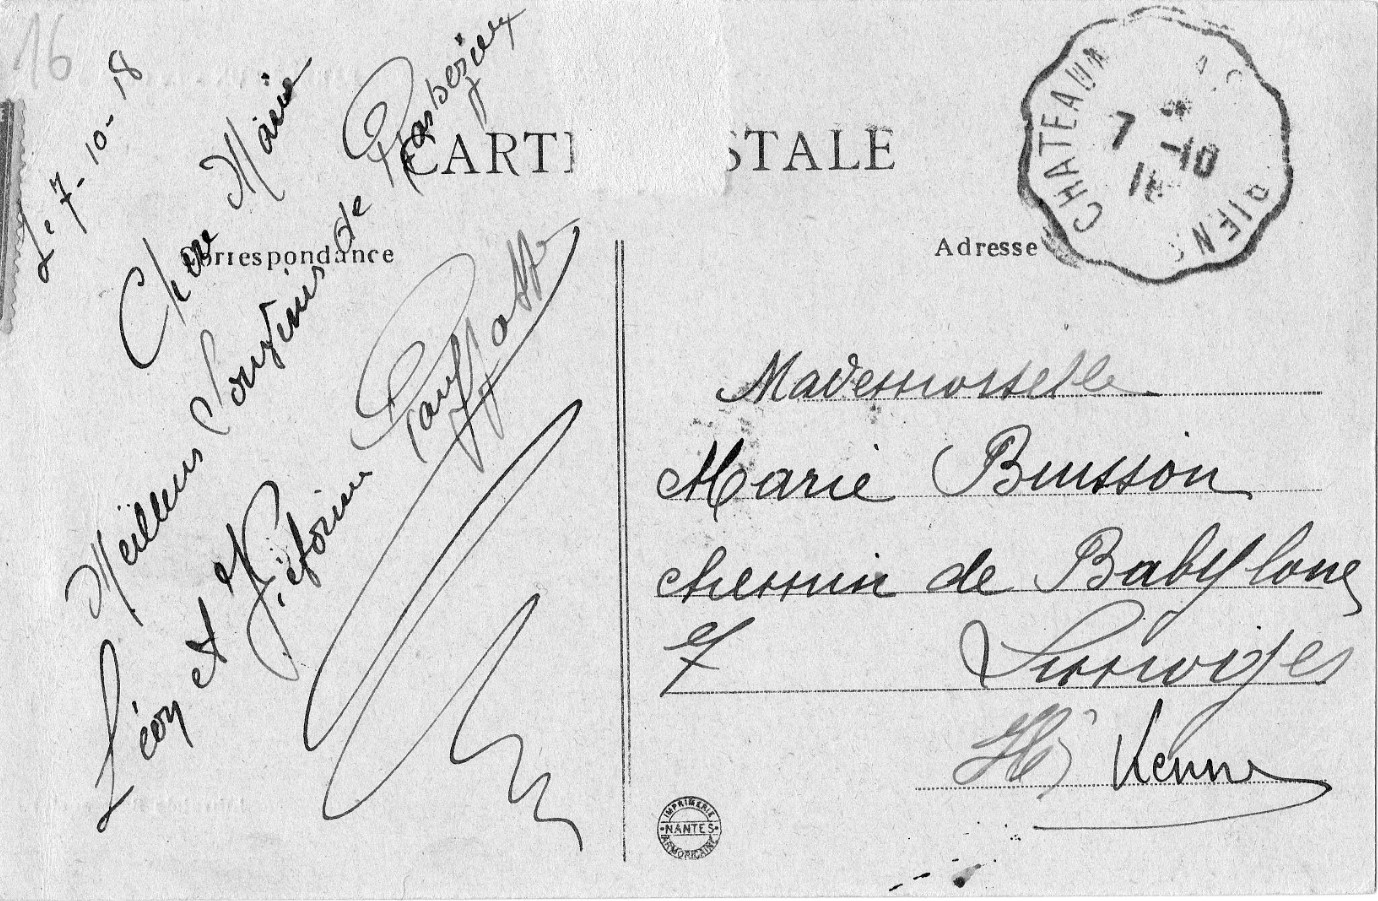 16
Le 7-10-18
Chère Marie
Meilleurs Souvenirs de Barbezieux
Léon et Victorine
CARTE STALE
Correspondance
Adresse
CHATEAUN
7 -10
18
Mademoiselle
Marie Buisson
chemin de Babylone
7 Limoges
Hte Vienne
IMPRIMERIE
NANTES
ARMORICAINE